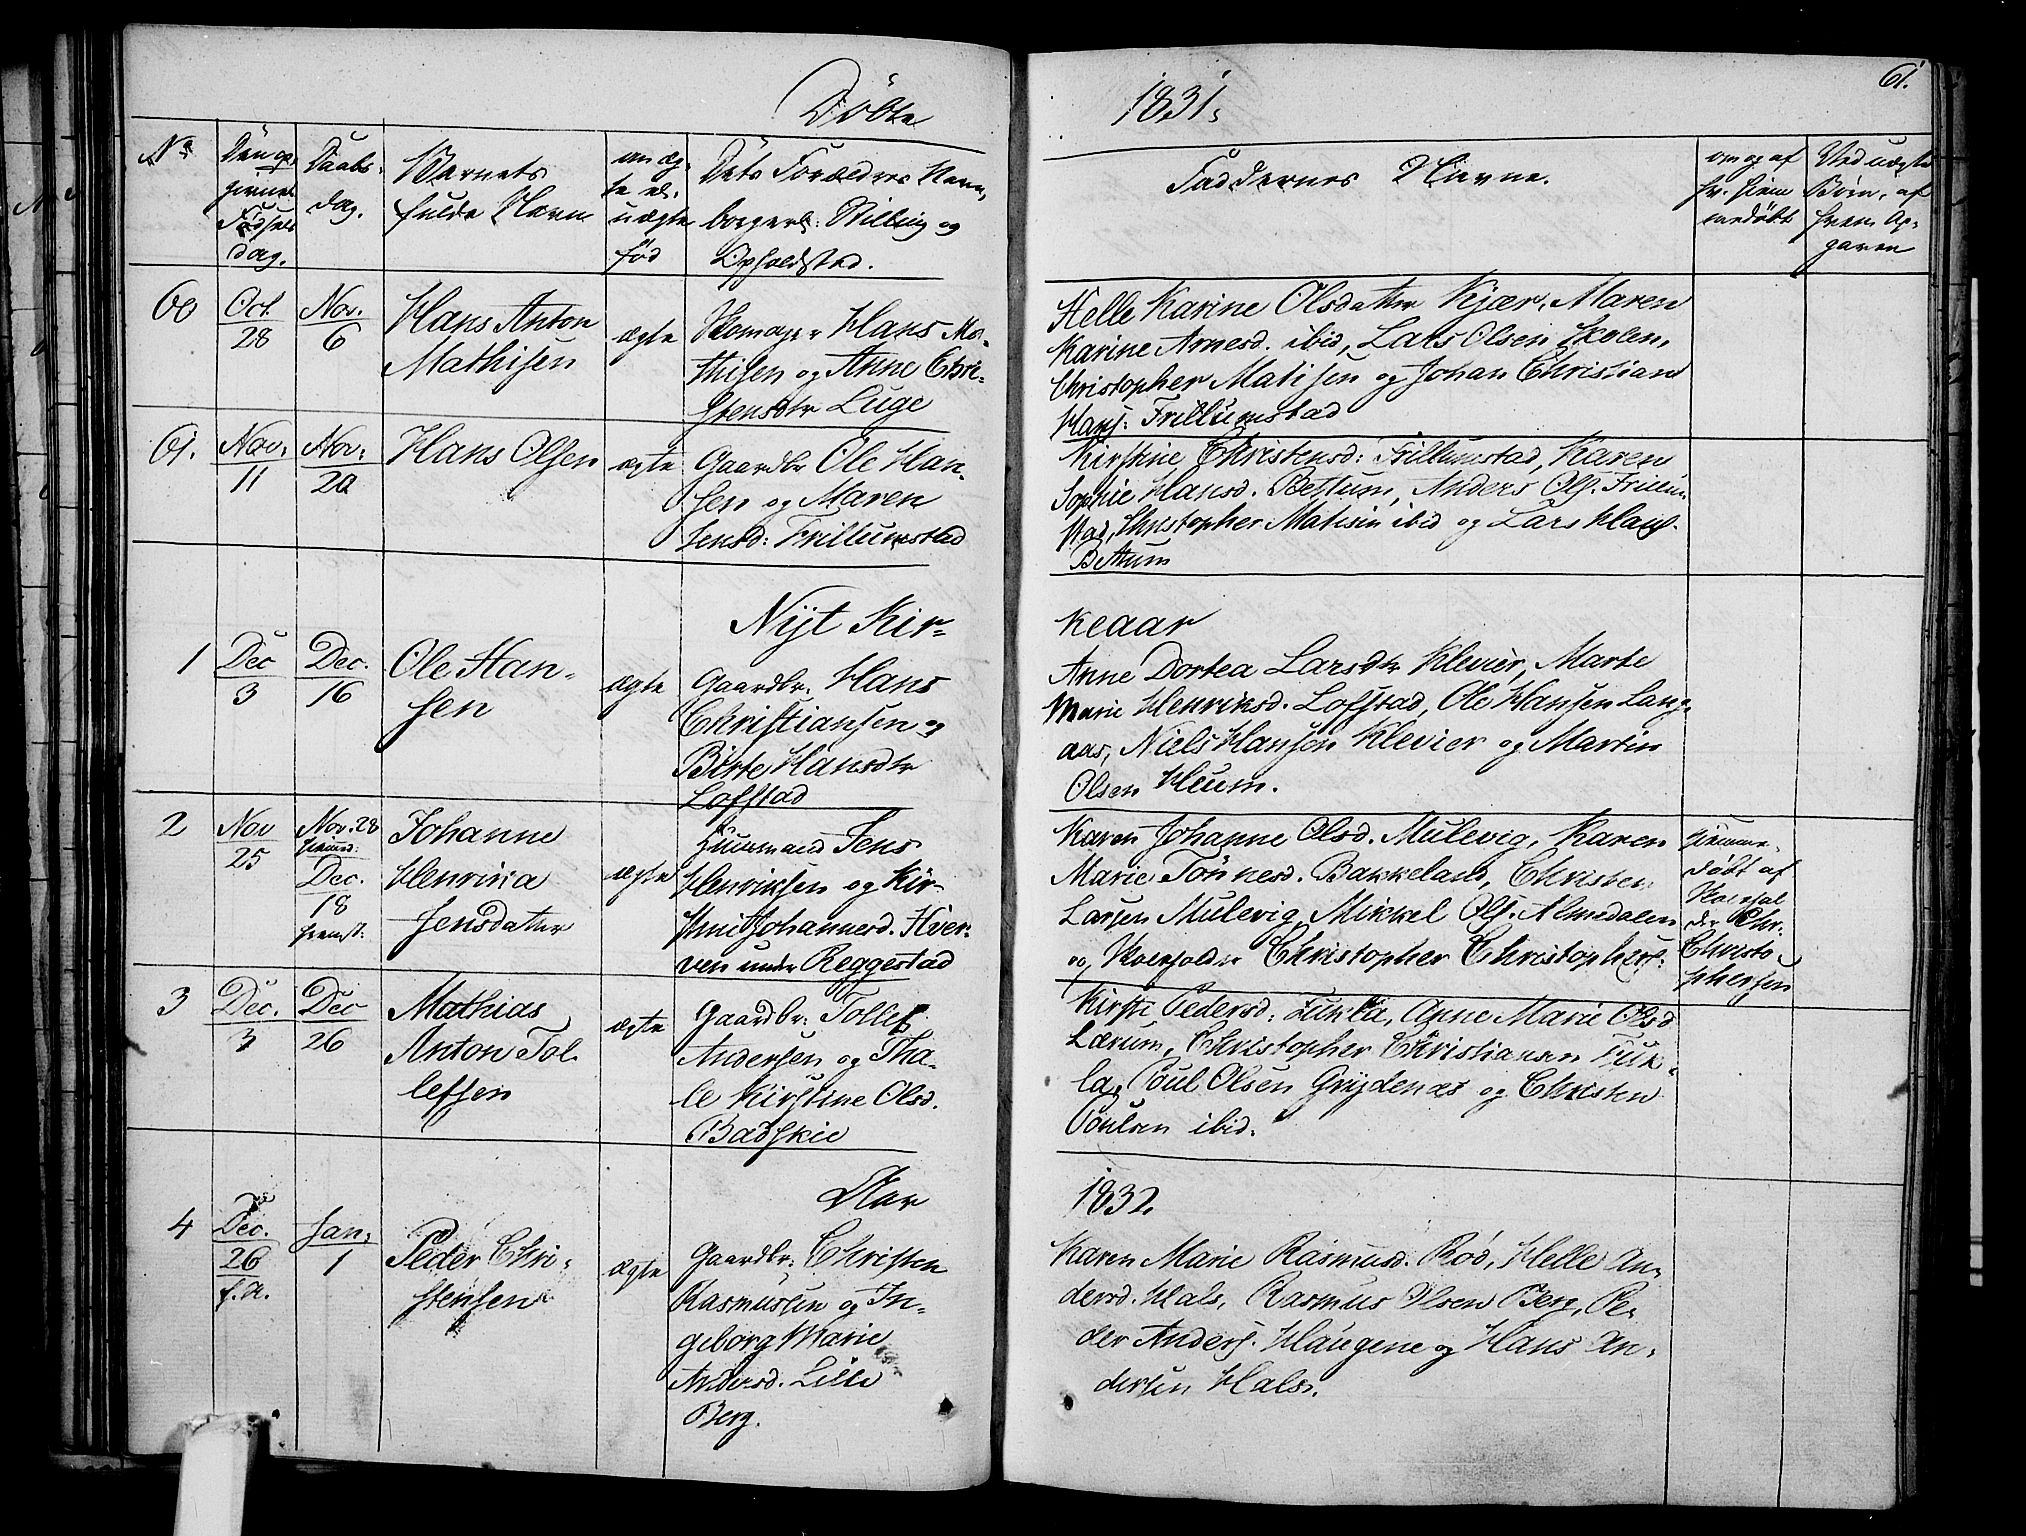 Döbte
1831.
61.
No
Den op-
givne
Födsels
dag.
Daabs-
dag.
Barnets
fulde Navn
om æg-
te el.
uægte
fød
Dets Forældres Navn,
borgerl: Stilling og
Opholdsted.
Faddernes Navne.
om og af
hv. hiem
medøbt
Ved uægte
Børn, af
hvem Op-
gaven
60
Oct.
28
Nov.
6
Hans Anton
Mathisen
ægte
Skomager Hans Ma-
thisen og Anne Chri-
stensdtr Luge
Helle Karine Olsdatter Kjær, Maren
Karine Arnesd. ibid, Lars Olsen Skolen,
Christopher Matisen og Johan Christian
Hans: Frillumstad
61.
Nov.
11
Nov.
20
Hans Olsen
ægte
Gaardbr Ole Han-
sen og Maren
Jensd: Frillumstad
Kirstine Christensd: Frillumstad, Karen
Sophie Hansd. Bettum, Anders Ols. Frillum-
stad, Christopher Matisen ibid og Lars Hans.
Bettum
Nÿt Kir-
keaar
1
Dec
3
Dec.
16
Ole Han-
sen
ægte
Gaardbr. Hans
Christiansen og
Birte Hansdtr
Lofstad
Anne Dortea Larsdtr Klevier, Marte
Marie Henriksd. Lofstad, Ole Hansen Lang-
aas, Niels Hansen Klevier og Martin
Olsen Heum.
2
Nov
25
Nov. 28
hiemd.
Dec.
18
fremst.
Johanne
Henrika
Jensdatter
ægte
Huusmand Jens
Henriksen og Kir-
stine Johannesd. Hver-
ven under Reggestad
Karen Johanne Olsd. Mulevig, Karen
Marie Tønnesd. Bakkeland, Christen
Larsen Mulevig, Mikkel Ols. Almedalen
og Skoeholder Christopher Christophers:
hiemme-
døbt af
Skoehol
der Chr.
Christo-
phersen
3
Dec.
3
Dec
26
Mathias
Anton Tol
lefsen
ægte
Gaardbr: Tollef
Andersen og Tha-
le Kirstine Olsd.
Badskie
Kirsti Pedersd: Fuukla, Anne Marie Olsd
Lærum, Christopher Christiansen Fuk-
la, Poul Olsen Grÿdenæs og Christen
Poulsen ibid.
Aar
1832.
4
Dec.
26
f. A.
Jan.
1
Peder Chri-
stensen
ægte
Gaardbr: Christen
Rasmusen og In-
geborg Marie
Andersd. Lille
Berg.
Karen Marie Rasmusd. Rød, Helle An-
dersd. Hals, Rasmus Olsen Berg, Pe-
der Anders. Haugene og Hans An-
dersen Hals.